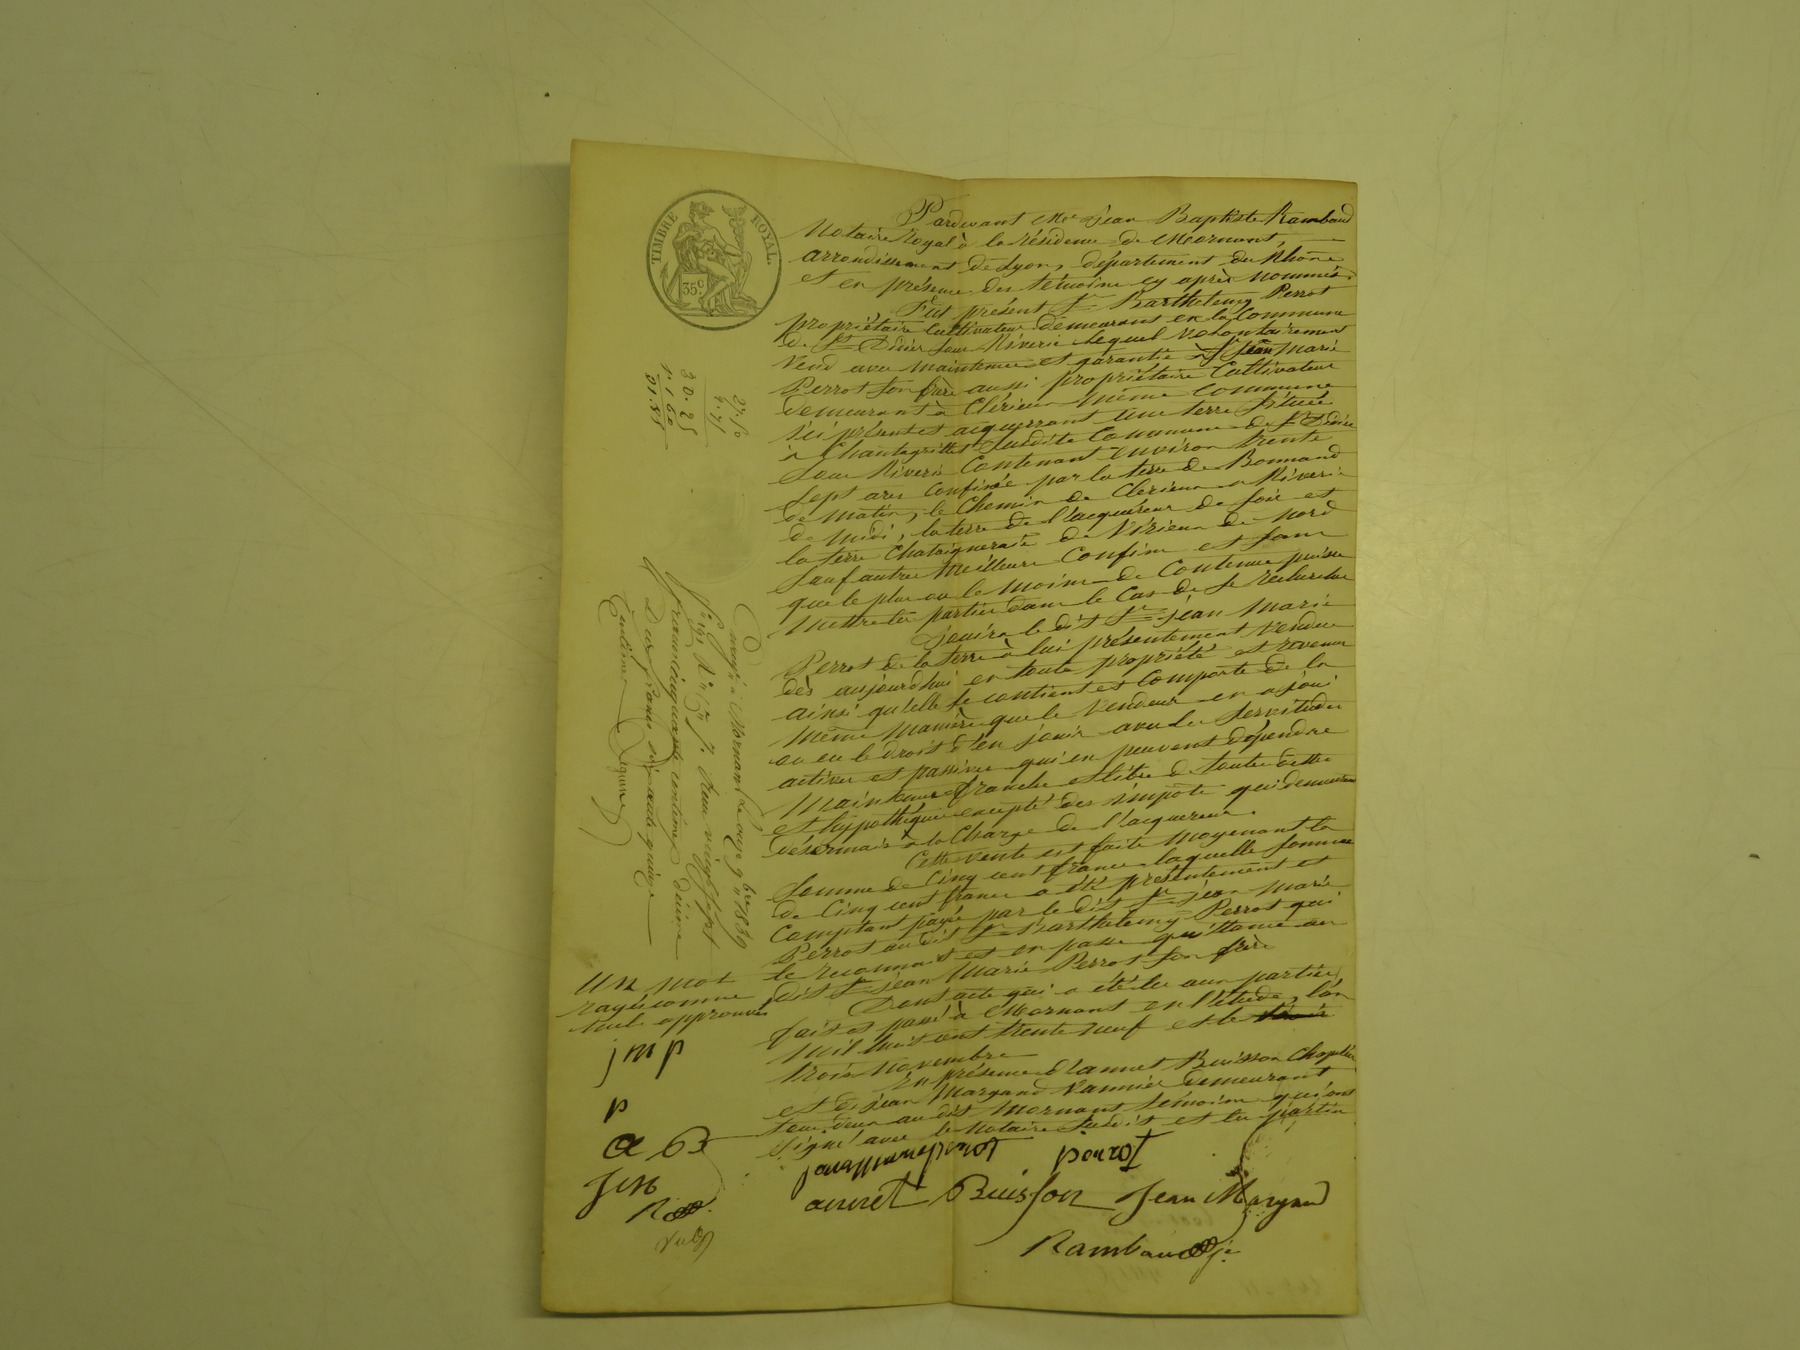 TIMBRE ROYAL.
35c.
Pardevant Me jean Baptiste Rambaud
Notaire Royal à la résidence de Mornant
arrondissement de Lyon, département du Rhône
et en présence des témoins cy après nommés.
Fut présent Sr Barthelemy Perrot
propriétaire Cultivateur demeurant en la Commune
de St Didier sous Riverie lequel volontairement
vend avec maintenue et garantie à Sr jean Marie
Perrot son frère aussi propriétaire Cultivateur
demeurant à Clérieux même Commune
ici présent et acquerrant une terre située
à Chantegrillet susdite Commune de St Didier
sous Riverie Contenant environ trente
sept ares confinée par la terre de Bonnand
de matin, le Chemin de Clérieux a Riverie
de midi, la terre de l'acquéreur de soir et
la terre Chataigneraie de Vérieux de nord
sauf autres meilleurs Confins et sans
que le plus ou le moins de Contenue puisse
mettre les parties dans le Cas de se rechercher
jouira le dit Sr jean Marie
Perrot de la terre à lui présentement vendue
dès aujourdhui en toute propriété et revenu
ainsi qu'elle se contient et Comporte de la
même manière que le vendeur en a joui
ou eu le droit d'en jouir avec les servitudes
actives et passives qui en peuvent dépendre
Maintenue franche et libre de toutes dettes
et hypothèques excepté des impôts qui demeurent
désormais à la Charge de l'acquereur.
Cette vente est faite moyenant la
somme de Cinq cent francs laquelle somme
de Cinq cent francs a été présentement et
Comptant payée par le dit Sr jean Marie
Perrot au dit Sr Barthelemy Perrot qui
le reconnait et en passe quittance au
dit Sr jean Marie Perrot son frère
Dont acte qui a été lu aux parties
fait et passé à Mornant en l'étude, l'an
mil huit cent trente neuf et le
trois Novembre
En présence d'annet Buisson Chapelier
et de jean Margand Vannier demeurant
tous deux au dit Mornant témoins qui ont
signé avec le Notaire susdit et les parties
jeanmarie perrot perrot
annet Buisson Jean Margand
Rambaud
27.50
2.75
30.25
1.60
31.85
Enregé à Mornant Le onze 9bre 1839
fo 191 Vo C 5 7. Reçu vingt sept
francs cinquante centimes, décime
Deux francs soixante quinze
Centimes
Un mot
rayé comme
nul approuvé
jmp
p
a B
Jm
R